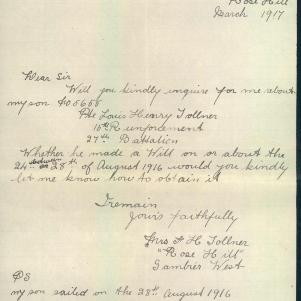 Rose Hill
March 1917
Dear Sir
Will you kindly inquire for me about
my son
Pte Louis Henry Tollner
15th Reinforcement
27th Battalion
Whether he made a Will on or about the
24 between 28th of August 1916 would you kindly
let me know how to obtain it
I remain
Yours faithfully
Mrs F H Tollner
"Rose Hill"
Gambier West
PS
my son sailed on the 28th August 1916